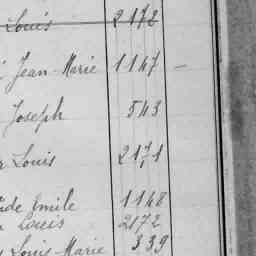 Louis 2172
Jean-Marie 1147 –
Joseph 543
Louis 2171
Emile 1148
Louis 2172
Louis-Marie 339